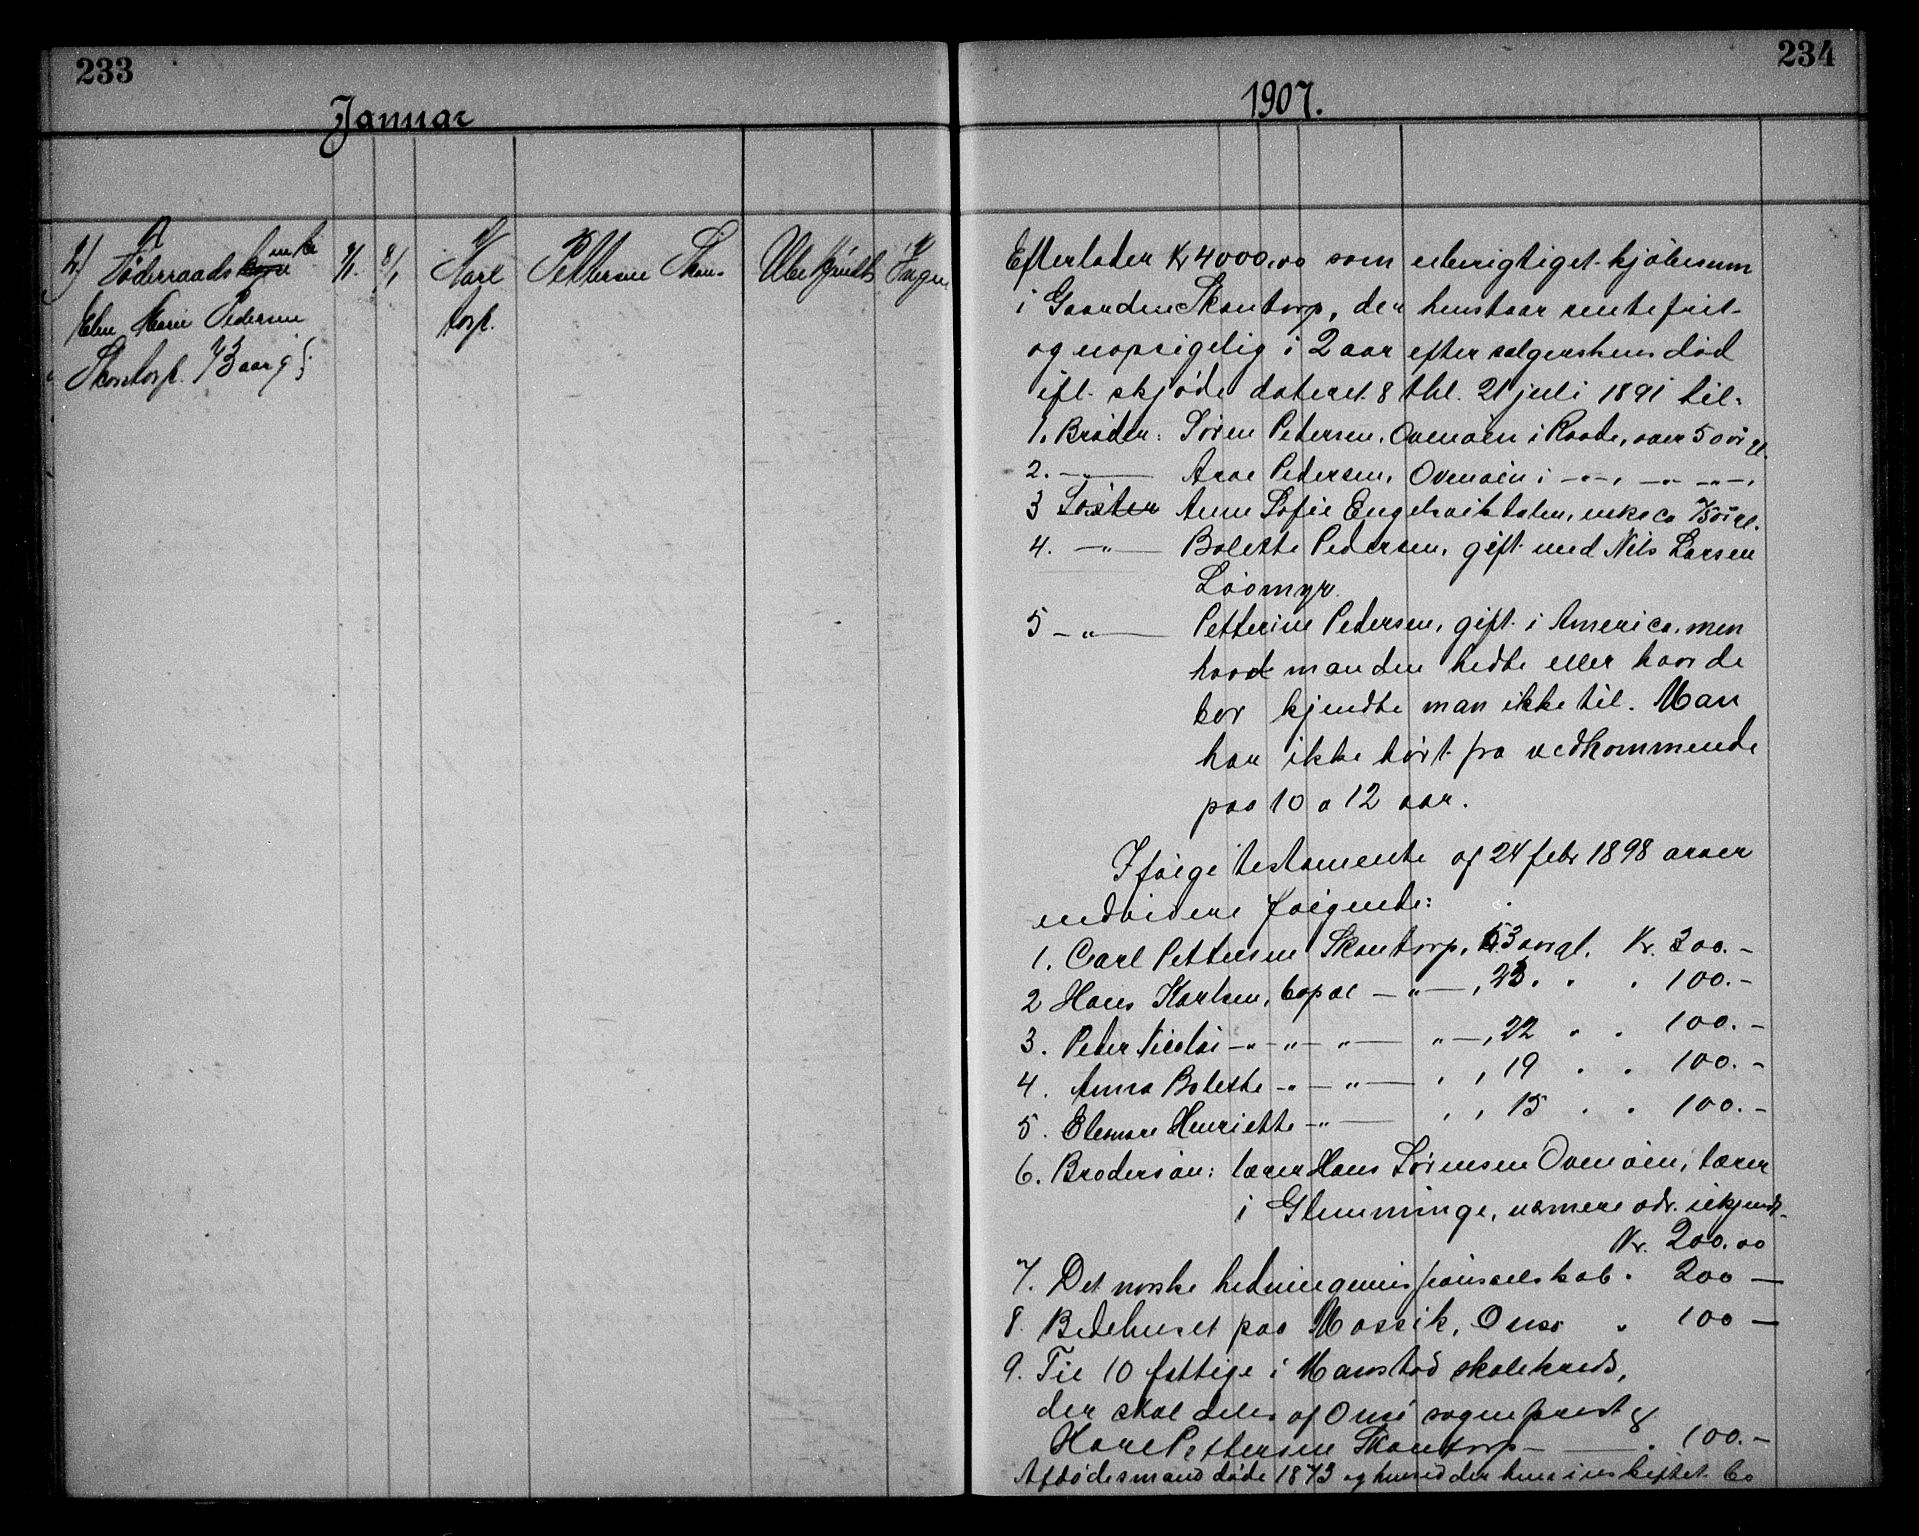 233
234
Januar
1907.
2) Føderraadsenke
Elen Marie Pedersen
Skantorp. 73 aar g
8/1
Karl
Pettersen Skan-
torp.
Ubekjendt
Ingen
Efterlader Kr 4000,00 som uberigtiget kjøbesum
i Gaarden Skantorp, der henstaar rentefrit
og uopsigelig i 2 aar efter sælgerskens død
ifl. skjøde dateret 8 thl. 21 juli 1891 til:
1. Broder: Søren Petersen, Ovenøen i Raade, over 50 år gl.
2. —"— Arne Petersen, Ovenøen i —"—, —"— —"—,
3 Søster Anne Sofie Engelsvikdalen, enke ca 75 år gl.
4. —"— Bolette Pedersen, gift med Nils Larsen
Løsmyr.
5 —"— Petterine Pedersen, gift i America, men
hvad manden hedte eller hvor de
bor kjendte man ikke til. Man
har ikke hørt fra vedkommende
paa 10 a 12 aar.
Ifølge testamente af 24 febr 1898 arver
endvidere følgende:
1. Carl Pettersen Skantorp, 53 aar gl. Kr. 300.-
2 Hans Karlsen, bopæl —"—, 23 " " 100.-
3. Peter Nicolai —"—"—"— "—, 22 " " 100.-
4. Anna Bolette —"—"— , , 19 " " 100.-
5. Elenore Henriette —"— , , 15 " " 100.-
6. Brodersøn: lærer Hans Sørensen Ovenøen, lærer
i Glemminge, nærmere adr. ukjendt.
Kr. 200.00
7. Det norske hedningemissionsselskab " 200 —
8. Bedehuset paa Mossik, Onsø " 100 —
9. Til 10 fattige i Manstad skolekreds,
der skal deles af Onsø sogneprest &
Karl Pettersen Skantorp — " 100.-
Afdødes mand døde 1873 og hensidder hun i uskiftet bo